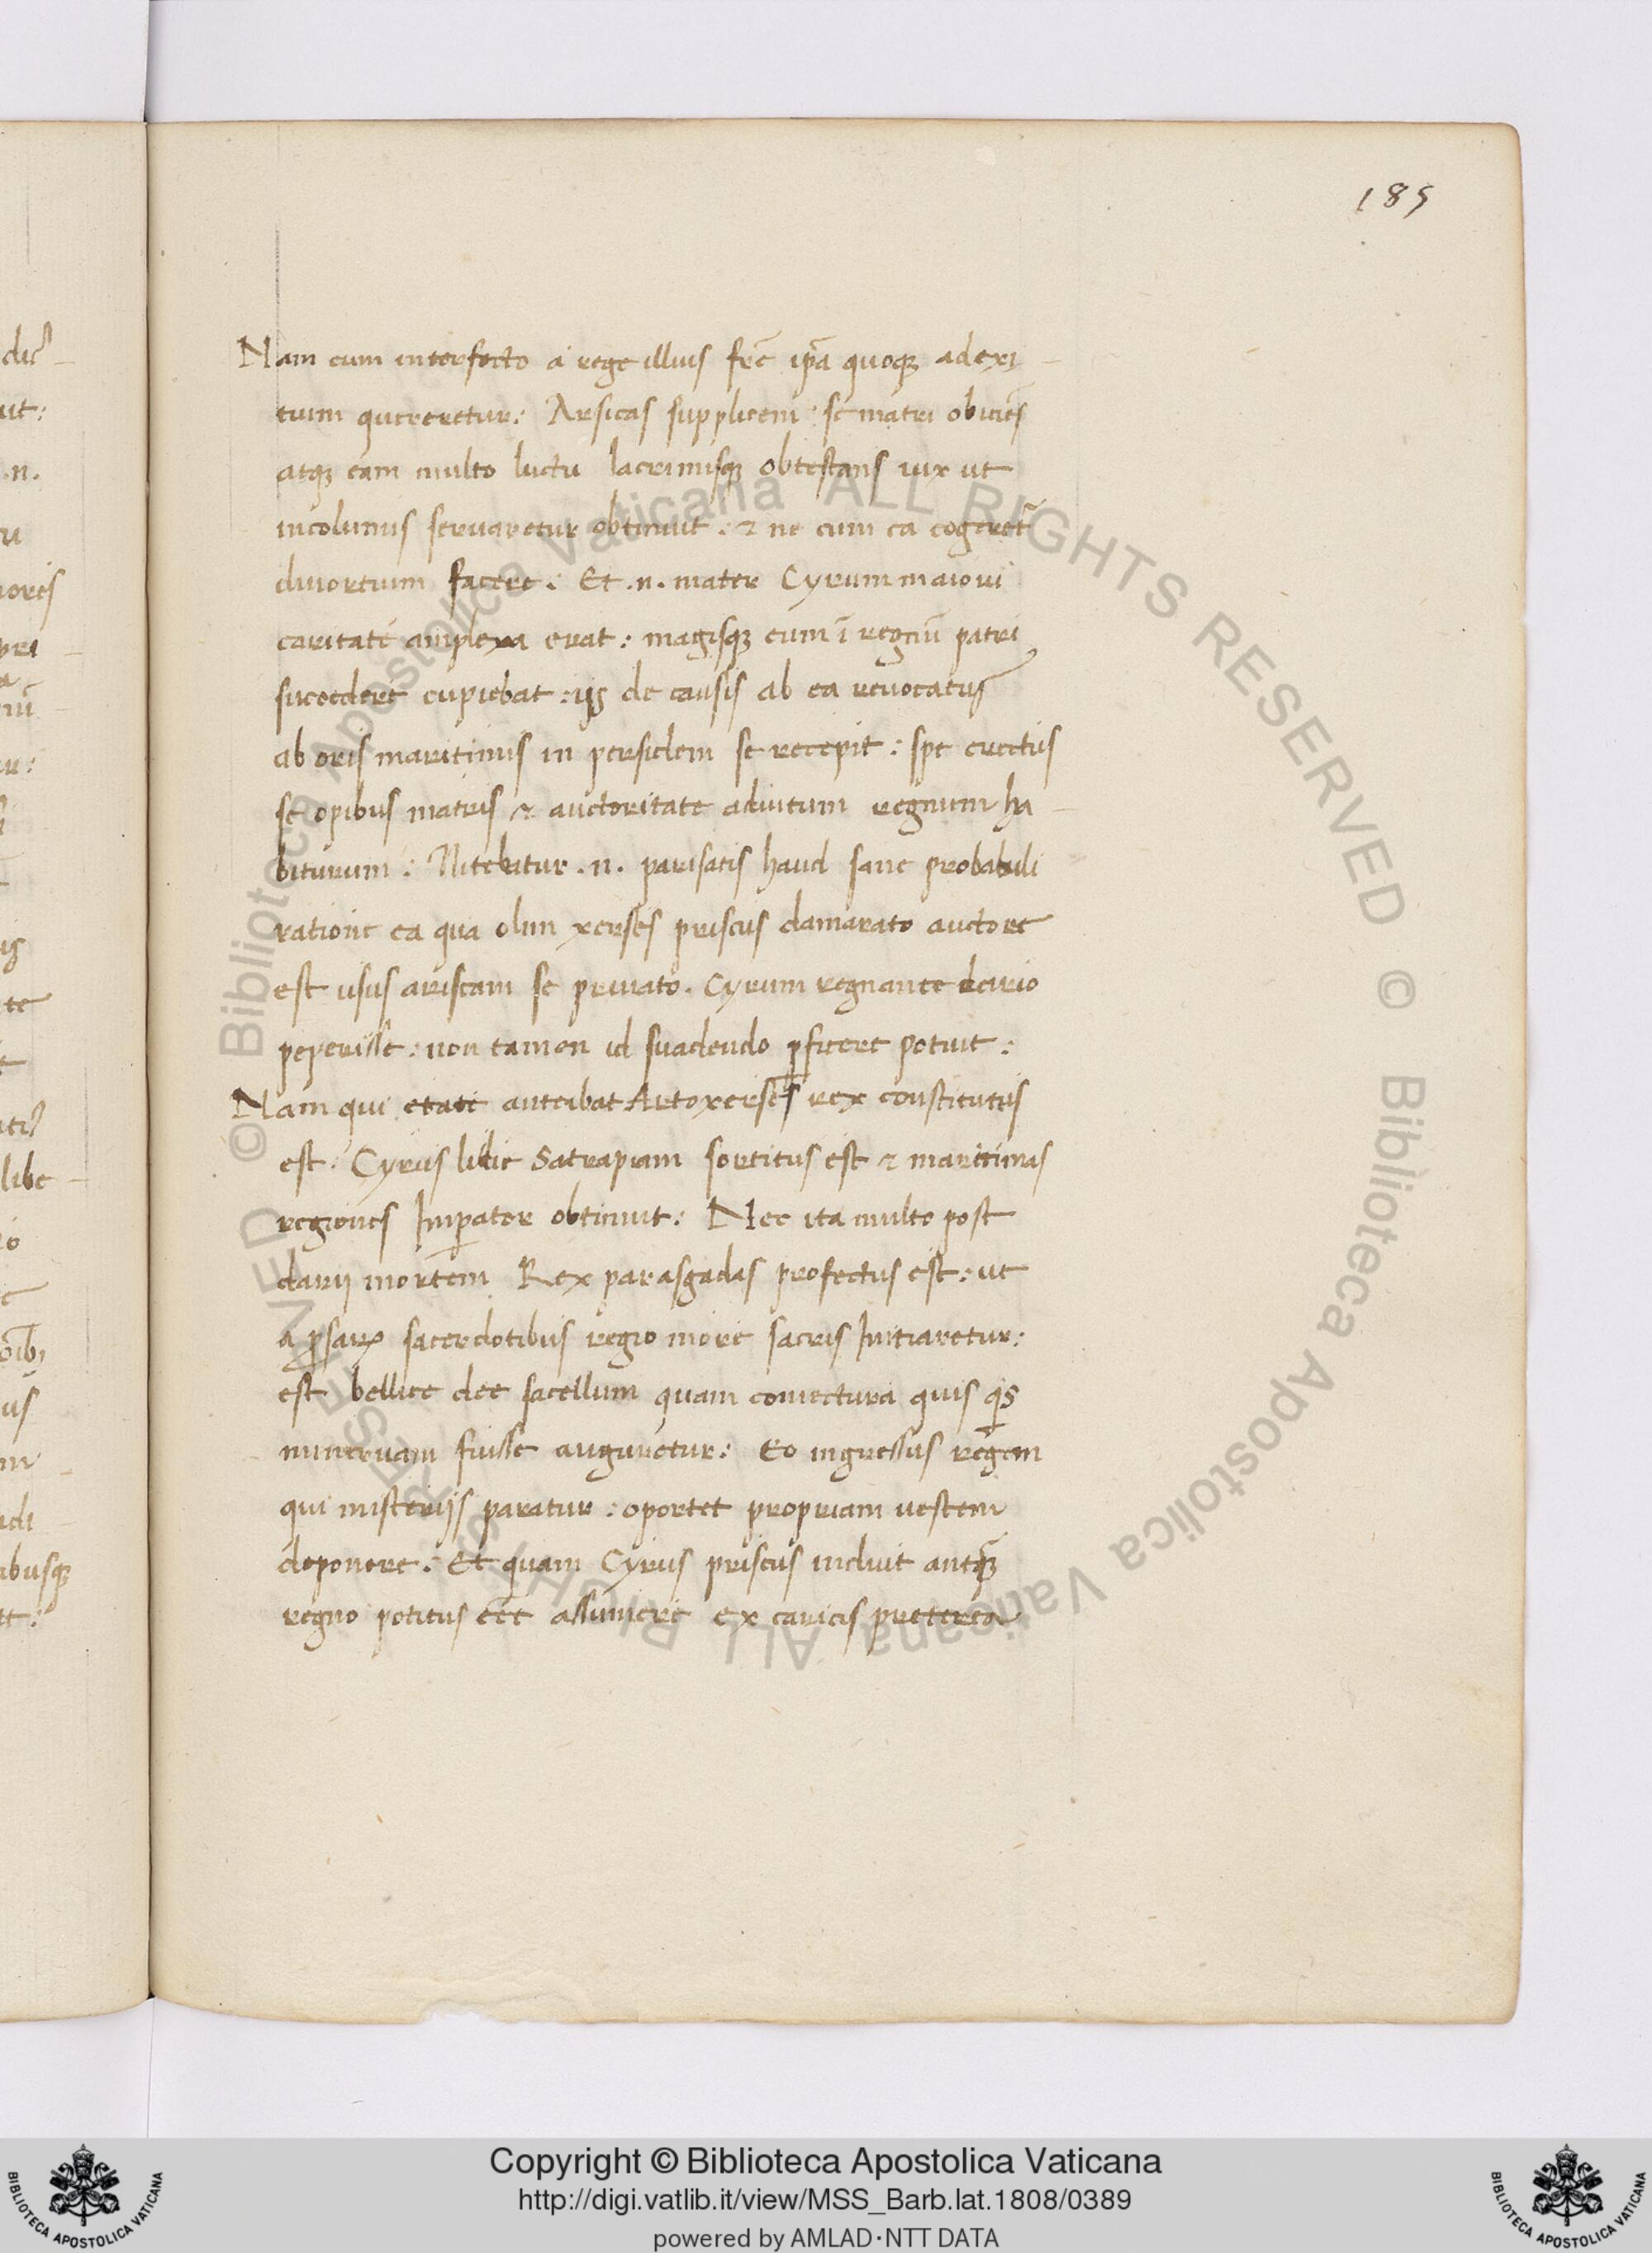 185
Nam cum interfecto a rege illius fr̄e ip̄a quoq; ad exi-
tium quereretur: Arsicas supplicem se matri obiciēs
atq; eam multo luctu lacrimisq; obtestans uix ut
incolumis seruaretur obtinuit: & ne cum ea cogeret̄
diuortium facere. Et .n. mater Cyrum maiori
caritate amplexa erat: magisq; eum ī regnū patri
succedere cupiebat: ijs de causis ab ea reuocatus
ab oris maritimis in persidem se recepit: spe erectus
se opibus matris & auctoritate adiutum regnum ha-
biturum: Nitebatur .n. parisatis haud sane probabili
ratione ea qua olim xerses priscus damarato auctore
est usus ariscam se priuato. Cyrum regnante dario
peperisse: non tamen id suadendo ꝑficere potuit:
Nam qui etate anteibat Artoxerses rex constitutus
est. Cyrus lidie Satrapiam sortitus est & maritimas
regiones Imꝑator obtinuit: Nec ita multo post
darij mortem Rex parasgadas profectus est: ut
a ꝑsaꝝ sacerdotibus regio more sacris Initiaretur:
est bellice dee sacellum quam coniectura quis q̄s
mineruam fuisse auguretur: Eo ingressus regem
qui misterijs paratur: oportet propriam uestem
deponere: Et quam Cyrus priscus induit anteq̄;
regno potitus eēt assumere ex caricis preterea
Copyright © Biblioteca Apostolica Vaticana
http://digi.vatlib.it/view/MSS_Barb.lat.1808/0389
powered by AMLAD·NTT DATA